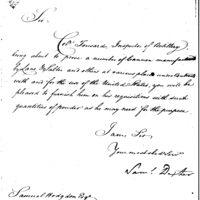 Sir.
Colo. Tousards, Inspector of Artillery
being about to prove a number of Cannon manufactured
by Lane & Salter and others at various places under Contracts
with and for the use of the United States, you will be
pleased to furnish him on his requisitions with such
quantities of powder as he may need for the purpose
I am Sir,
Your most obed Serv
Saml. Dexter
Samuel Hodgdon Esqr